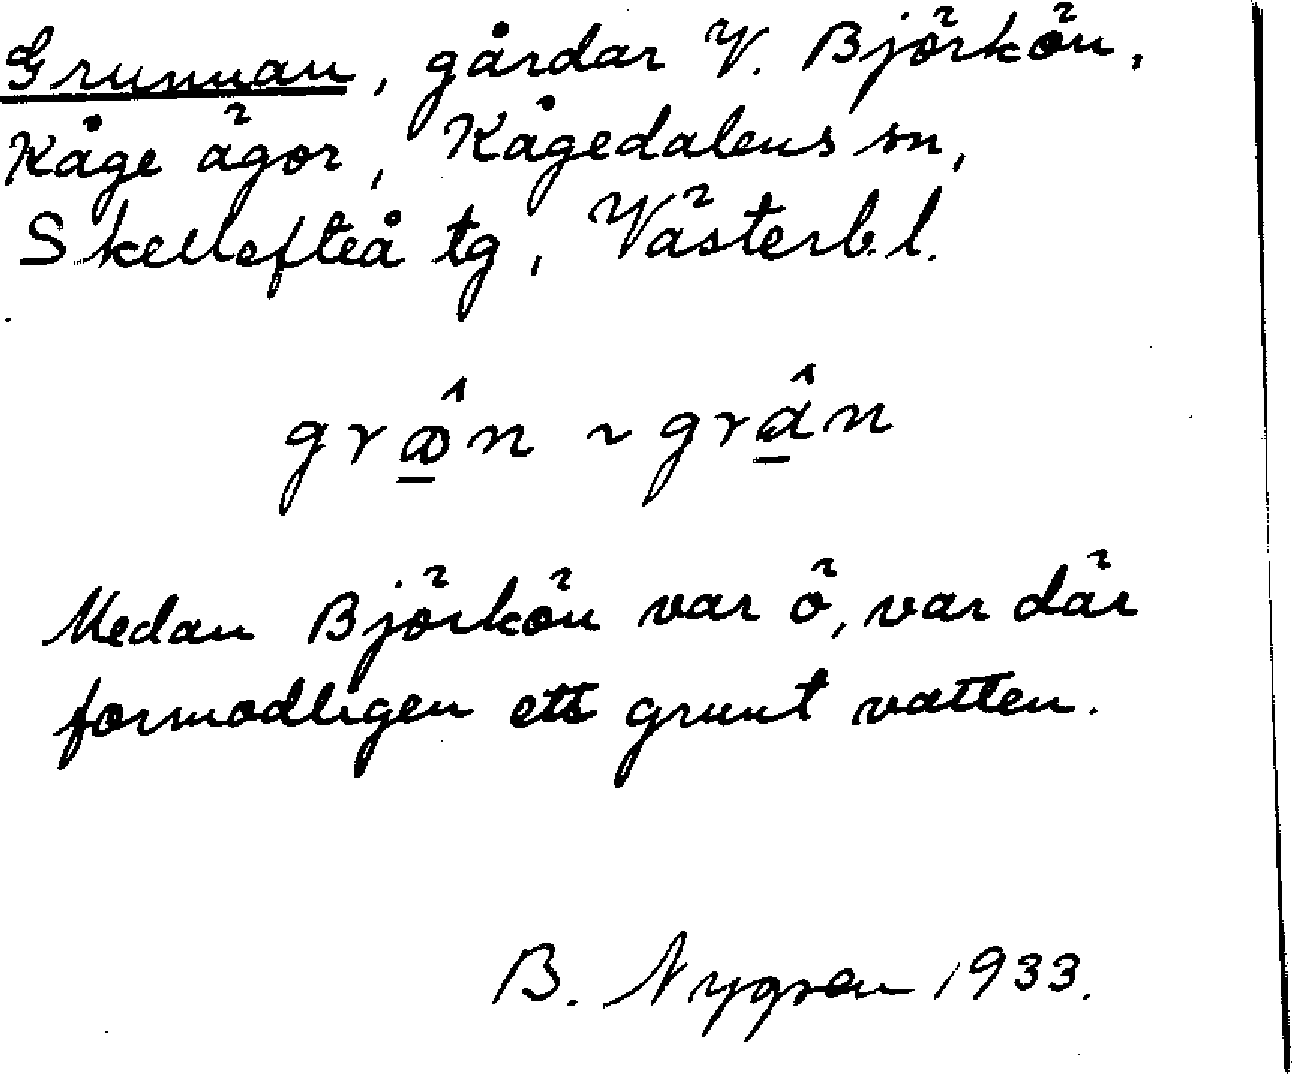 Grunnan, gårdar V. Björkön,
Kåge ägor, Kågedalens sn,
Skellefteå tg, Västerb. l.
Medan Björkön var ö, var där
formodligen ett grunt vatten.
B. Nygren 1933.